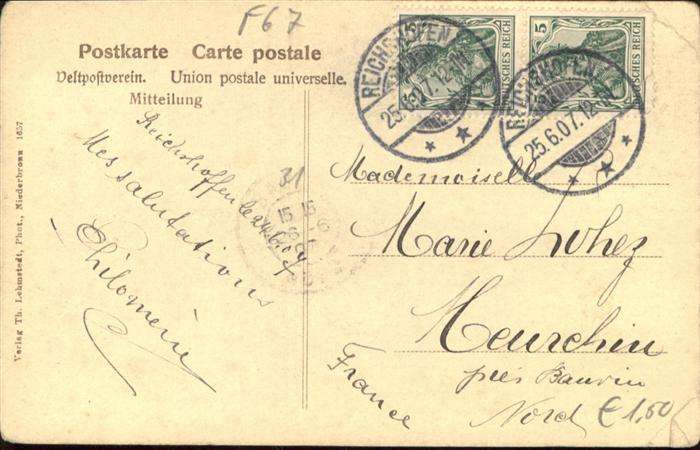 F67
Postkarte Carte postale
Weltpostverein. Union postale universelle.
Mitteilung
Reichshoffen le 24.6.07
Mes salutations
Philomène
Verlag Th. Lehmstedt, Phot., Niederbronn 1657
5
DEUTSCHES REICH
DEUTSCHES REICH
REICHSHOFEN
25.6.07.12
REICHSHOFEN
25.6.07.12
31
Mademoiselle
Marie
Meurchin
près Bauvin
Nord
France
€ 1,60